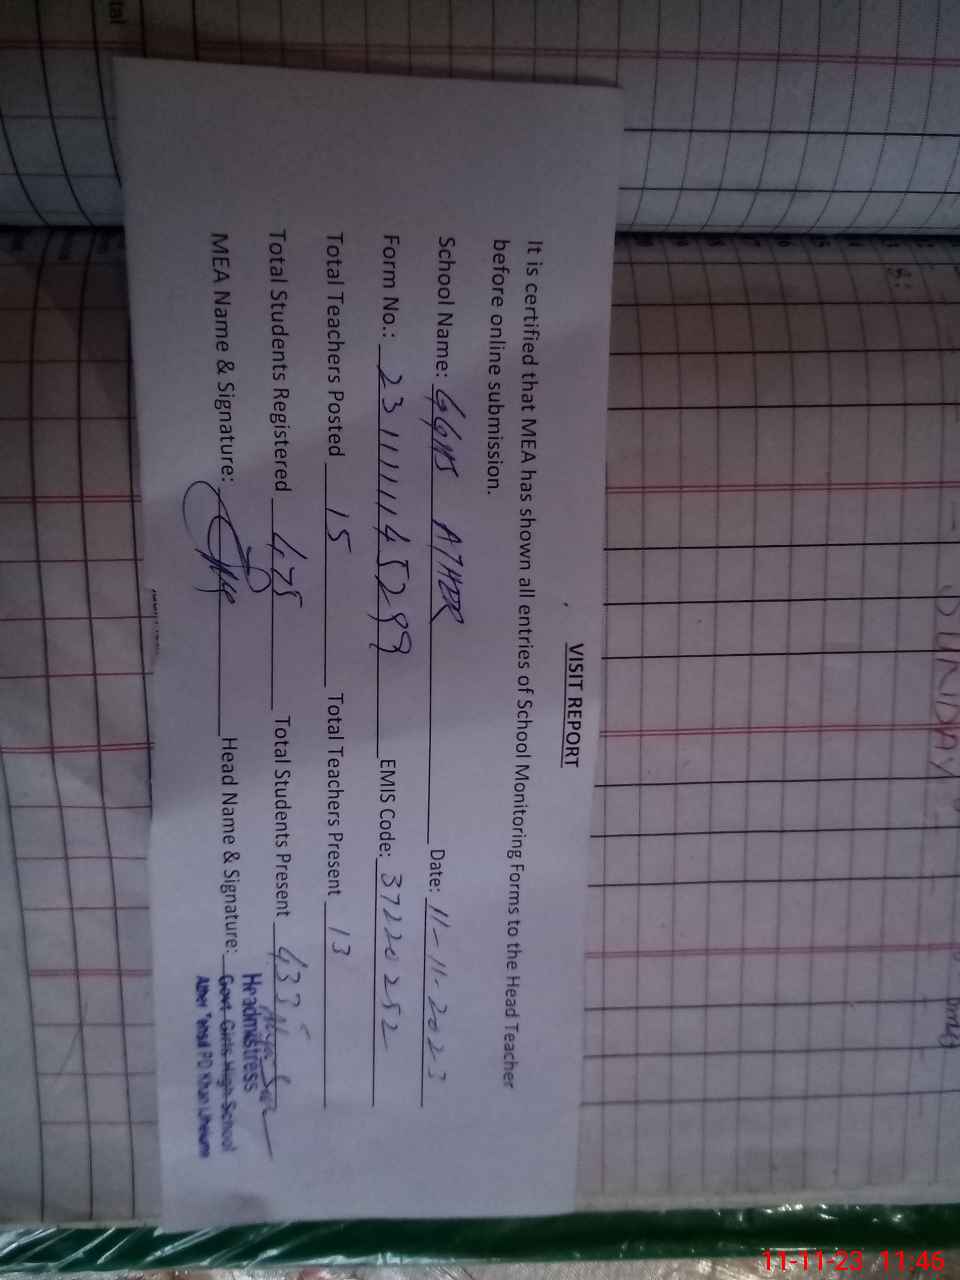 VISIT REPORT
It is certified that MEA has shown all entries of School Monitoring Forms to the Head Teacher
before online submission.
School Name: GGHS ATHER Date: 11-11-2023
Form No.: 2311111145299 EMIS Code: 37220252
Total Teachers Posted 15 Total Teachers Present 13
Total Students Registered 475 Total Students Present 433
MEA Name & Signature: Head Name & Signature:
Headmistress
Govt Girls High School
Ather Tehsil PD Khan Jhelum
SUNDAY
11-11-23 11:46